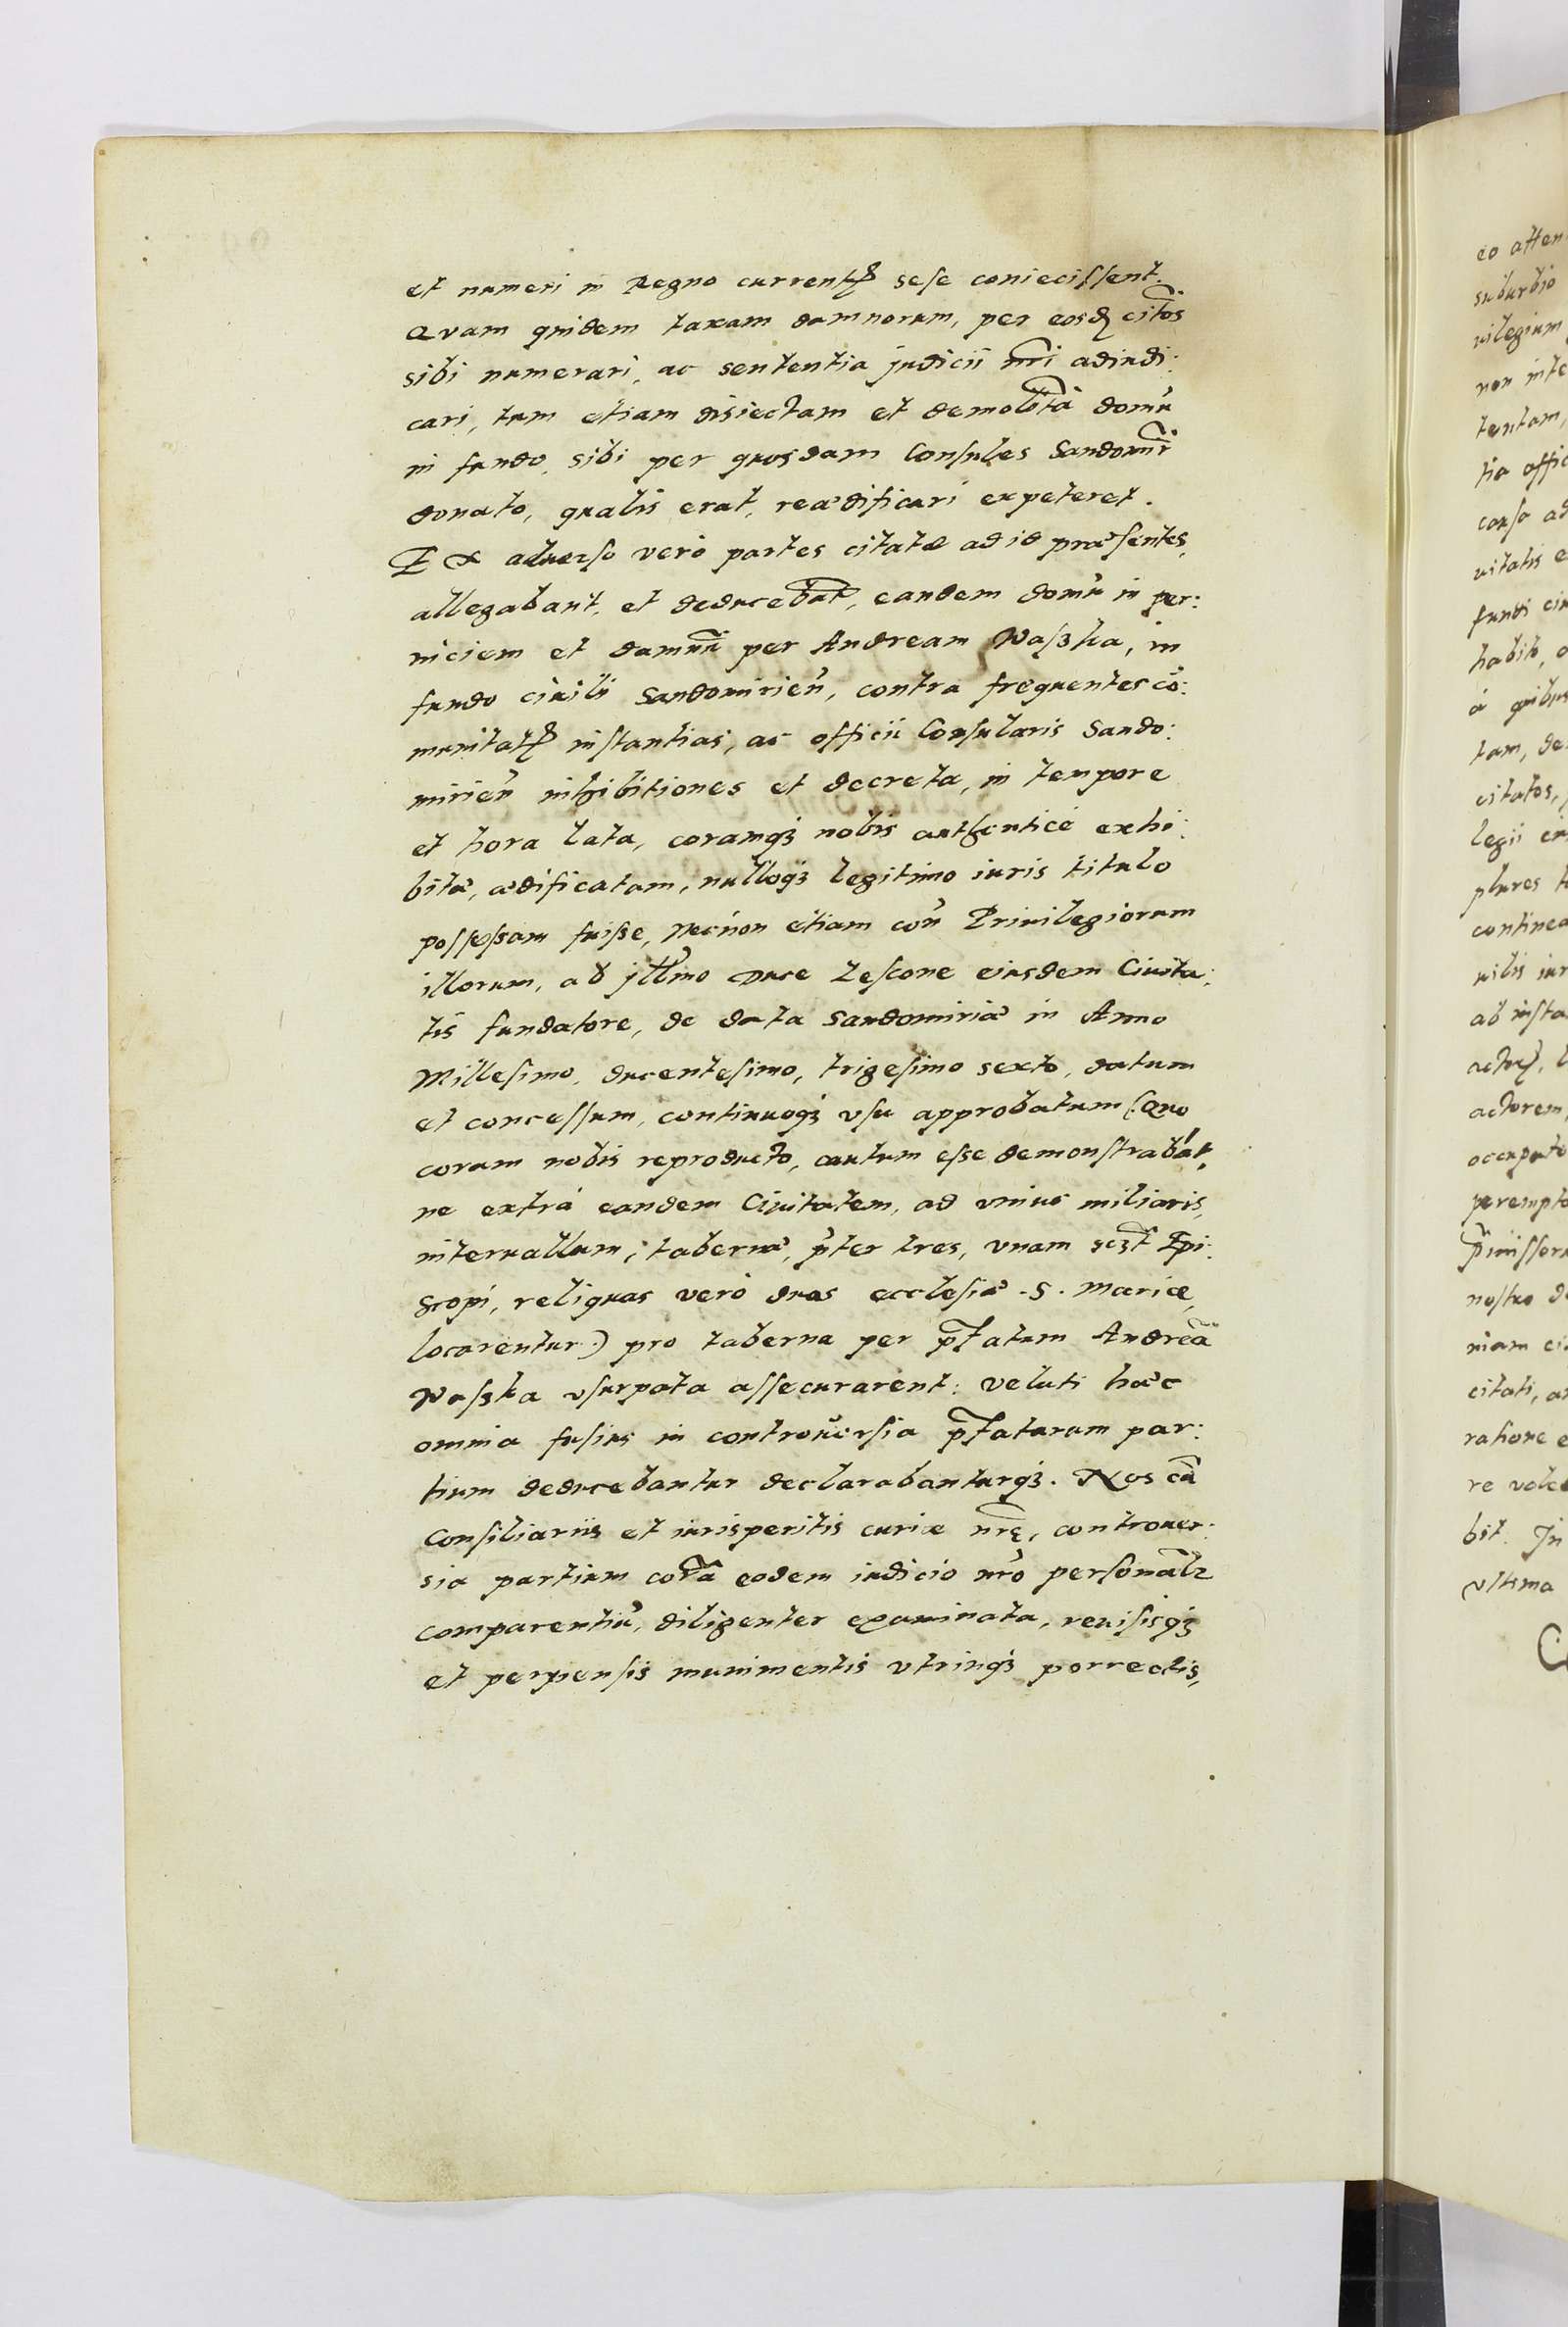 et numeri in Regno currentꝭ sese coniecissent.
Quam quidem taxam damnorum, per eosdꝫ citõs
sibi numerari, ac sententia judicii nr̃i adiudi:
cari, tum etiam disiectam et demolitã domũ
in fundo, sibi per quosdam Consules Sandomir̃
donato, qualis erat, reædificari expeteret.
Ex aduerso verò partes citatæ ad id præsentes,
allegabant, et deducebãt, eandem domũ in per:
niciem et damnũ per Andream Waszka, in
fundo ciuili Sandomirieñ, contra frequentes cõ:
munitatꝭ instantias, ac officii Consularis Sando:
mirieñ inhibitiones et decreta, in tempore
et hora lata, coramqꝫ nobis authenticè exhi:
bita, ædificatam, nulloqꝫ legitimo iuris titulo
possessam fuisse, necnon etiam coñ Priuilegiorum
illorum, ab jll̃mo Duce Lescone eiusdem Ciuita:
tis fundatore, de data Sandomiriæ in Anno
Millesimo, ducentesimo, trigesimo sexto, datum
et concessum, continuoqꝫ vsu approbatum (Quo
coram nobis reproducto, cautum esse demonstrabãt,
ne extrà eandem Ciuitatem, ad vnius miliaris,
interuallum, tabernæ, p̃ter tres, vnam sczt̃ Epi:
scopi, reliquas verò duas ecclesiæ .S. Mariæ,
locarentur.) pro taberna per p̃fatum Andreã
Waszka vsurpata assecurarent: veluti hæc
omnia fusius in controuersia p̃fatarum par:
tium deducebantur declarabanturqꝫ. Nos cũ
Consiliariis et iurisperitis curiæ nr̃ę, controuer:
sia partium corã eodem iudicio nr̃o personalꝛ
comparentiũ, diligenter examinata, reuisisqꝫ
et perpensis munimentis vtrinqꝫ porrectis,
eo atten
suburbio
uilegium
non inte
tentam,
tia offic
causa ad
uitatis e
fundi ciu
habito, a
à quibus
tam, de
citatos,
legii ei
plures t
continea
uilis iur
ab insta
actorem,
occupato
perempto
p̃missoru
nostro d
niam ci
citati, a
ratione e
re vole
bit. In
vltima